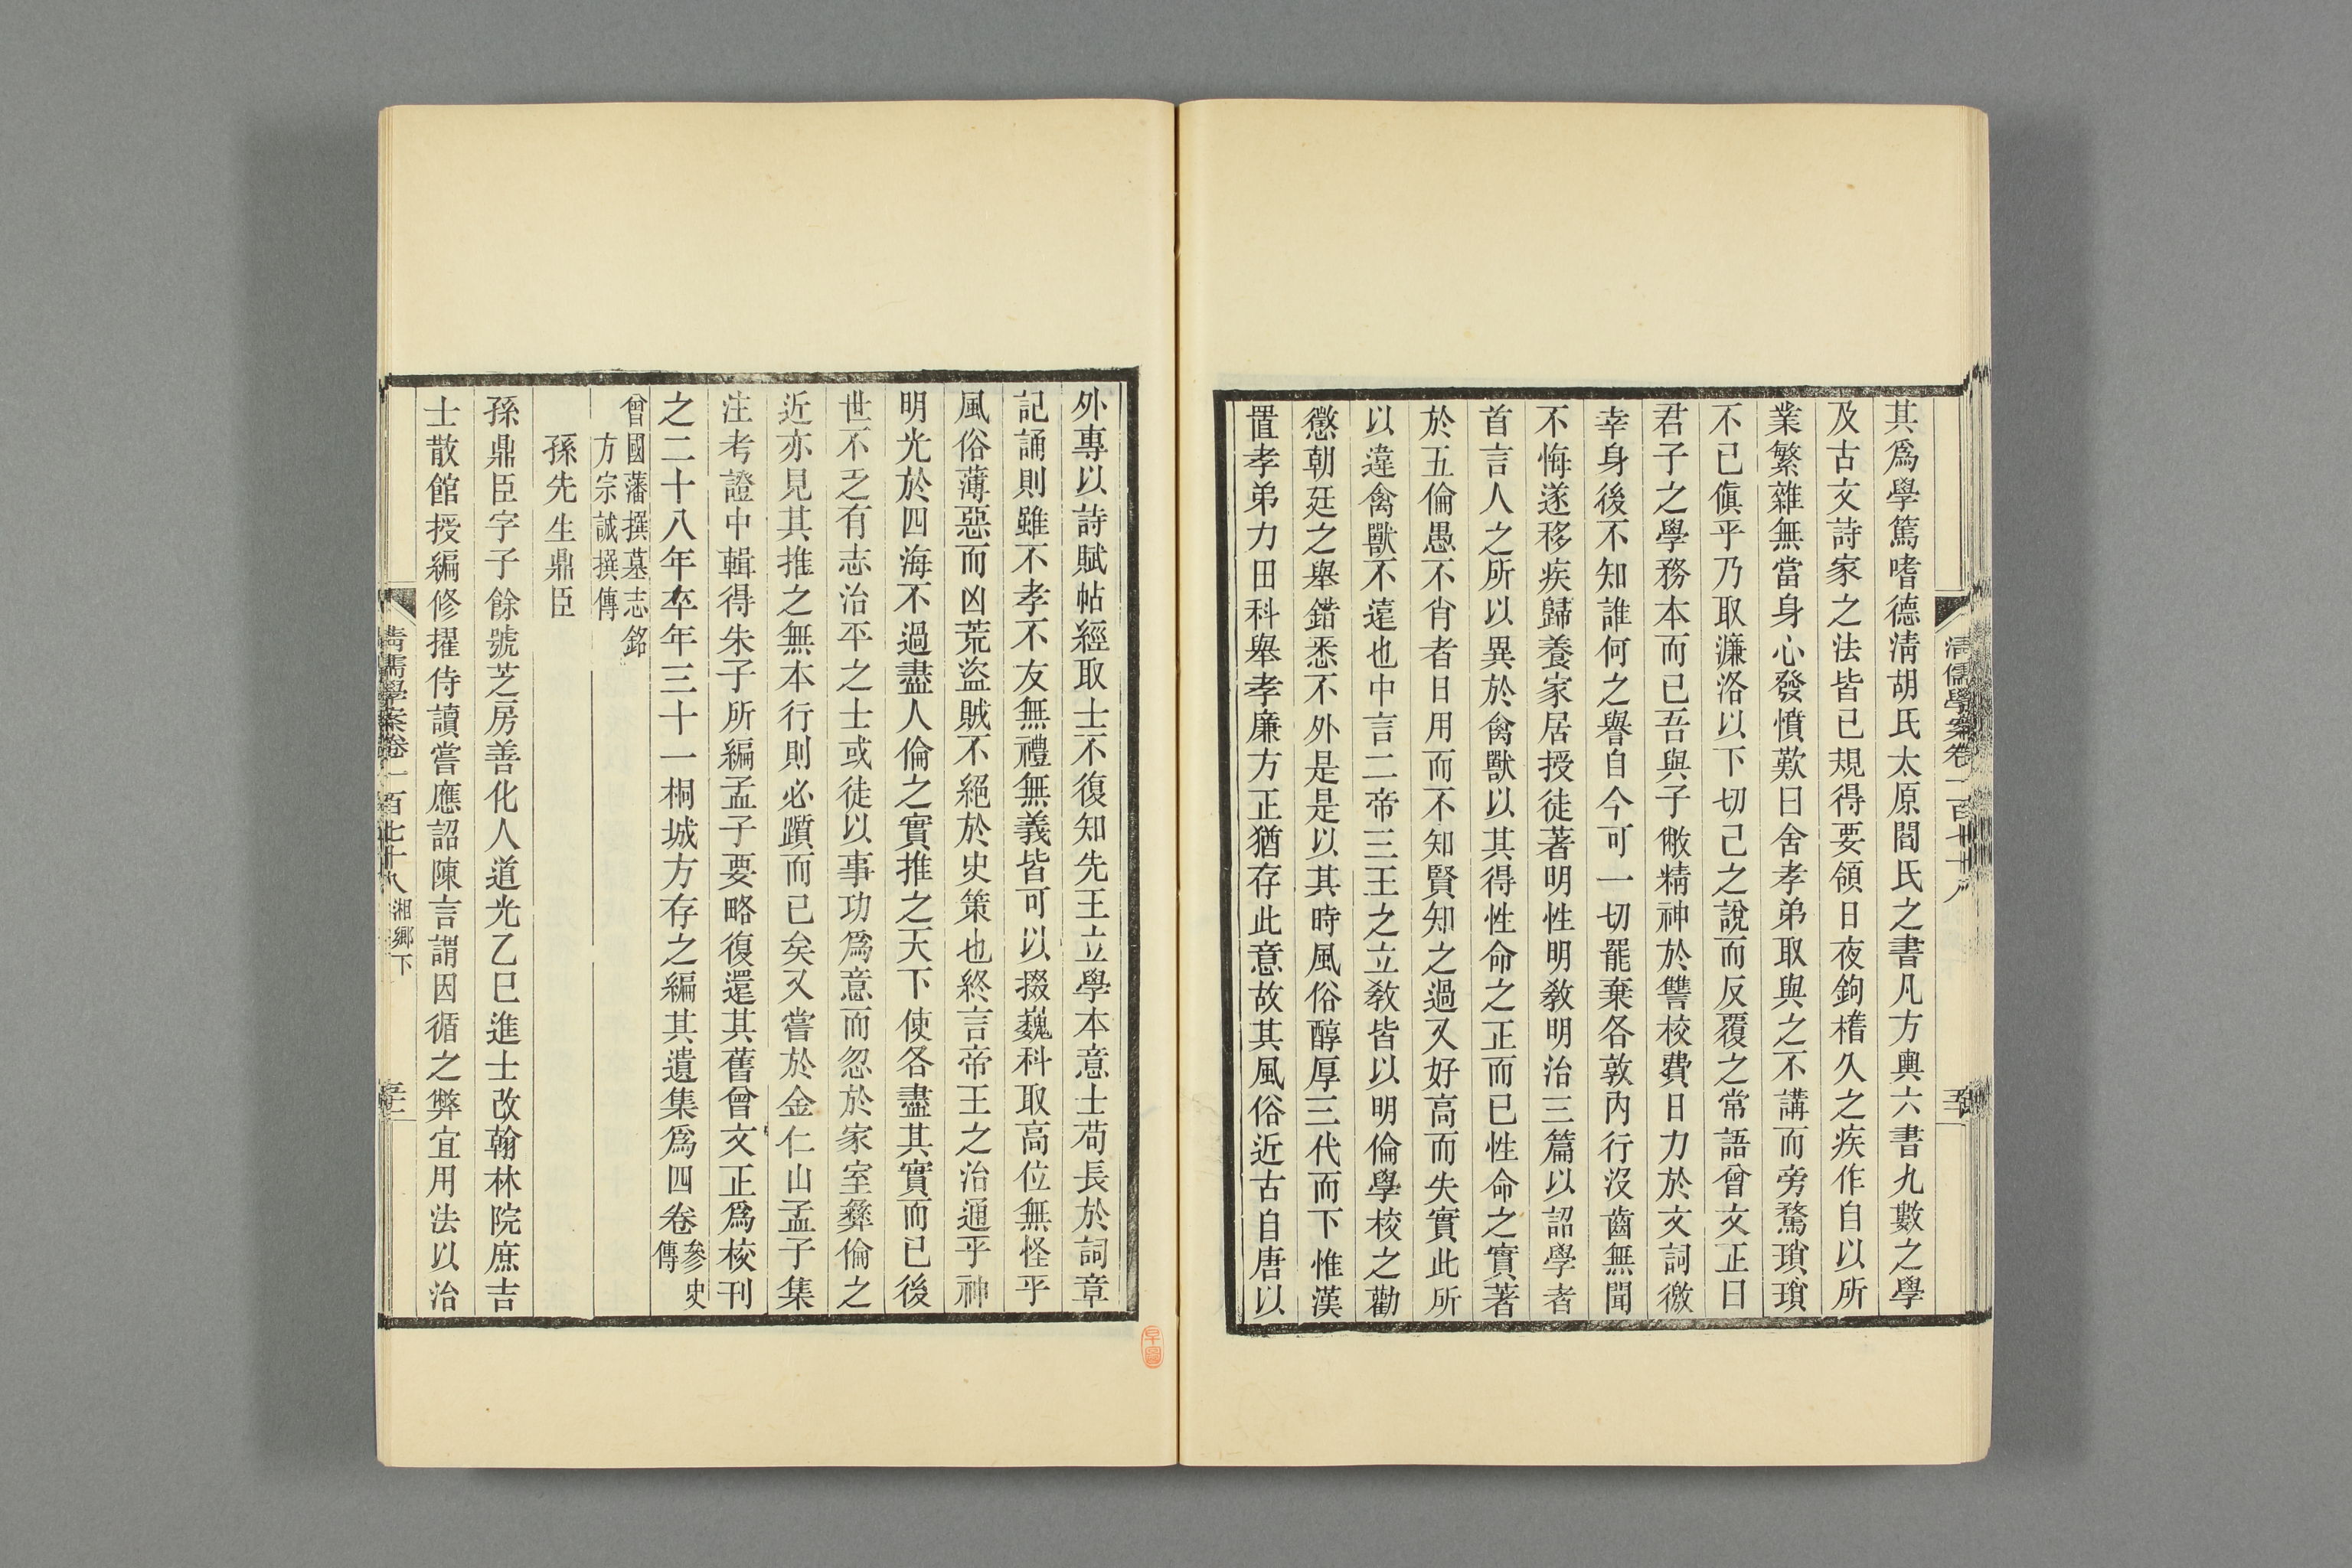 清儒學案卷一百七十八
其爲學篤嗜德淸胡氏太原閻氏之書凡方輿六書九數之學
及古文詩家之法皆已規得要領日夜鉤稽久之疾作自以所
業繁雜無當身心發憤歎曰舍孝弟取與之不講而旁騖瑣瑣
不已傎乎乃取濂洛以下切己之說而反覆之常語曾文正曰
君子之學務本而已吾與子敝精神於讐校費日力於文詞徼
幸身後不知誰何之譽自今可一切罷棄各敦內行沒齒無聞
不悔遂移疾歸養家居授徒著明性明敎明治三篇以詔學者
首言人之所以異於禽獸以其得性命之正而已性命之實著
於五倫愚不肖者日用而不知賢知之過又好高而失實此所
以違禽獸不遠也中言二帝三王之立敎皆以明倫學校之勸
懲朝廷之舉錯悉不外是是以其時風俗醇厚三代而下惟漢
置孝弟力田科舉孝廉方正猶存此意故其風俗近古自唐以
外專以詩賦帖經取士不復知先王立學本意士苟長於詞章
記誦則雖不孝不友無禮無義皆可以掇巍科取高位無怪乎
風俗薄惡而凶荒盜賊不絕於史策也終言帝王之治通乎神
明光於四海不過盡人倫之實推之天下使各盡其實而已後
世不乏有志治平之士或徒以事功爲意而忽於家室彝倫之
近亦見其推之無本行則必躓而已矣又嘗於金仁山孟子集
注考證中輯得朱子所編孟子要略復還其舊曾文正爲校刊
之二十八年卒年三十一桐城方存之編其遺集爲四卷參史
傳
曾國藩撰墓志銘
方宗誠撰傳
孫先生鼎臣
孫鼎臣字子餘號芝房善化人道光乙巳進士改翰林院庶吉
士散館授編修擢侍讀嘗應詔陳言謂因循之弊宜用法以治
清儒學案卷一百七十八 湘鄉下